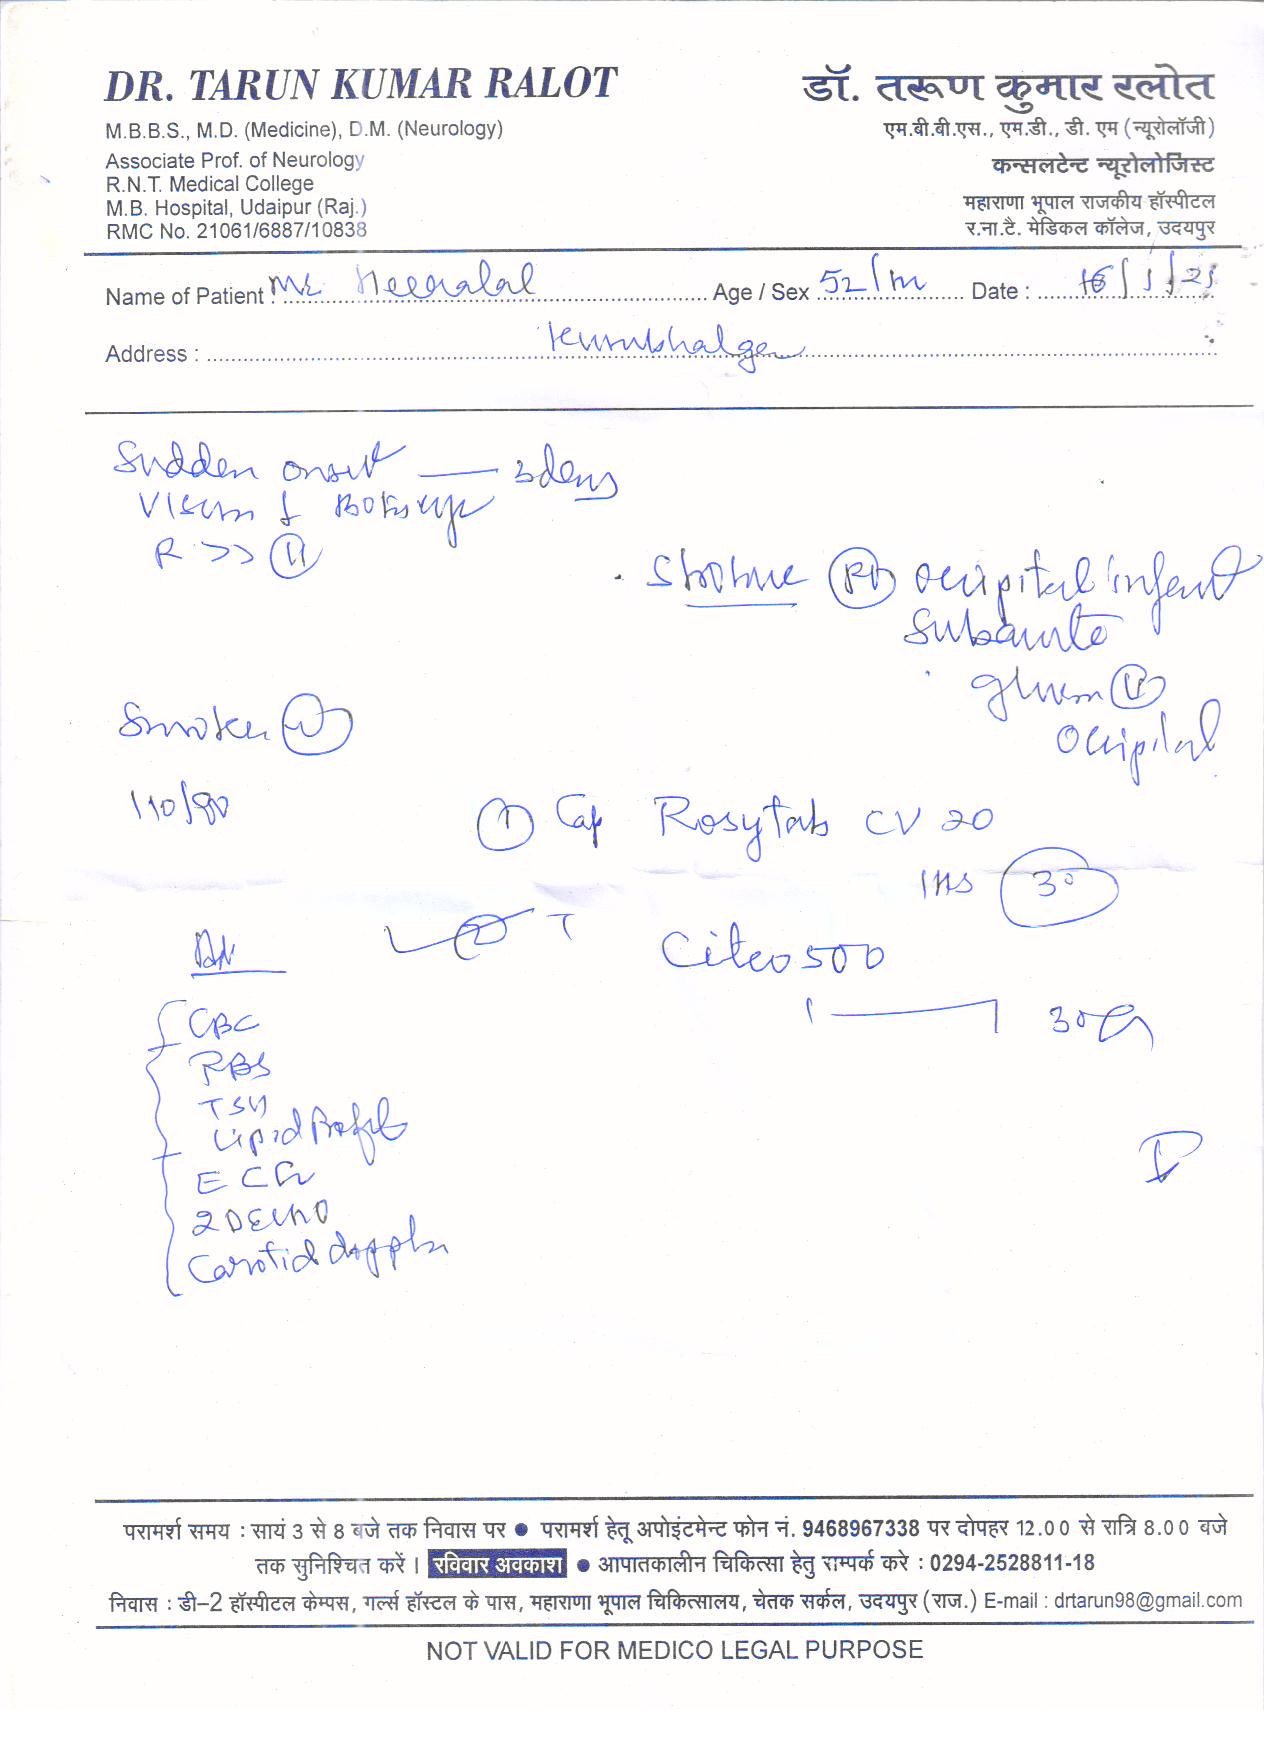 DR. TARUN KUMAR RALOT
M.B.B.S., M.D. (Medicine), D.M. (Neurology)
Associate Prof. of Neurology
R.N.T. Medical College
M.B. Hospital, Udaipur (Raj.)
RMC No. 21061/6887/10838
डॉ. तरूण कुमार रलोत
एम.बी.बी.एस., एम.डी., डी. एम (न्यूरोलॉजी)
कन्सलटेन्ट न्यूरोलोजिस्ट
महाराणा भूपाल राजकीय हॉस्पीटल
र.ना.टै. मेडिकल कॉलेज, उदयपुर
Name of Patient : Mr Heeralal Age / Sex 52/m Date :
Address :
Sudden onset — 3 days
Vision
R >>
Stroke Rt occipital infarct
Subacute
occipital
Smoker
110/80
① Cap Rosytab CV 20
1HS 30
② T Citco 500
1 — 1 30
CBC
RBS
TSH
Lipid Profile
ECG
2DECHO
Carotid doppler
परामर्श समय : सायं 3 से 8 बजे तक निवास पर ● परामर्श हेतू अपोइंटमेन्ट फोन नं. 9468967338 पर दोपहर 12.00 से रात्रि 8.00 बजे
तक सुनिश्चित करें । रविवार अवकाश ● आपातकालीन चिकित्सा हेतु सम्पर्क करे : 0294-2528811-18
निवास : डी–2 हॉस्पीटल केम्पस, गर्ल्स हॉस्टल के पास, महाराणा भूपाल चिकित्सालय, चेतक सर्कल, उदयपुर (राज.) E-mail : drtarun98@gmail.com
NOT VALID FOR MEDICO LEGAL PURPOSE